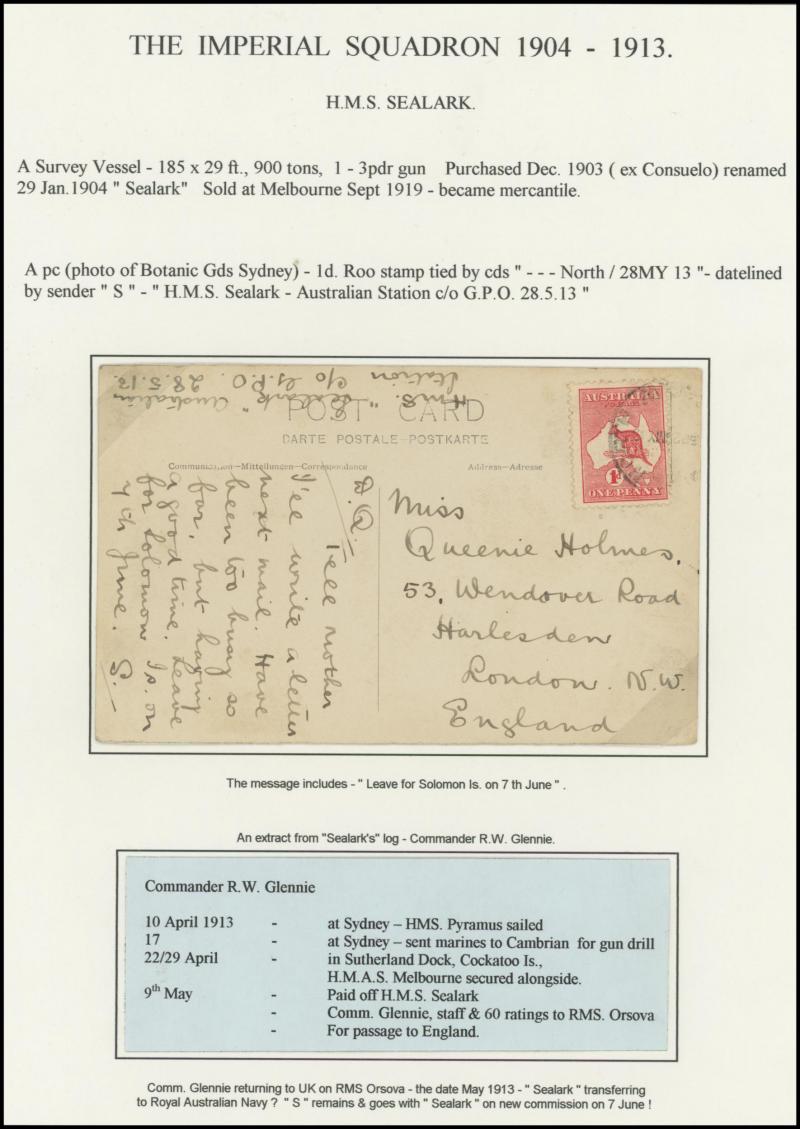 THE IMPERIAL SQUADRON 1904 - 1913.
H.M.S. SEALARK.
A Survey Vessel - 185 x 29 ft., 900 tons, 1 - 3pdr gun Purchased Dec. 1903 ( ex Consuelo) renamed
29 Jan.1904 " Sealark" Sold at Melbourne Sept 1919 - became mercantile.
A pc (photo of Botanic Gds Sydney) - 1d. Roo stamp tied by cds " - - - North / 28MY 13 "- datelined
by sender " S " - " H.M.S. Sealark - Australian Station c/o G.P.O. 28.5.13 "
H.M.S. "Sealark" Australian
Station c/o G.P.O. 28.5.13.
POST CARD
CARTE POSTALE-POSTKARTE
Communication-Mitteilungen-Correspondence
Address-Adresse
AUSTRALIA
1D
ONE PENNY
D.Q.
Tell mother
I'll write a letter
next mail. Have
been too busy so
far, but having
a good time. Leave
for Solomon Is. on
7th June. S.-
Miss
Queenie Holmes,
53, Wendover Road
Harlesden
London. N.W.
England
The message includes - " Leave for Solomon Is. on 7 th June " .
An extract from "Sealark's" log - Commander R.W. Glennie.
Commander R.W. Glennie
10 April 1913 - at Sydney – HMS. Pyramus sailed
17 - at Sydney – sent marines to Cambrian for gun drill
22/29 April - in Sutherland Dock, Cockatoo Is.,
H.M.A.S. Melbourne secured alongside.
9th May - Paid off H.M.S. Sealark
- Comm. Glennie, staff & 60 ratings to RMS. Orsova
- For passage to England.
Comm. Glennie returning to UK on RMS Orsova - the date May 1913 - " Sealark " transferring
to Royal Australian Navy ? " S " remains & goes with " Sealark " on new commission on 7 June !